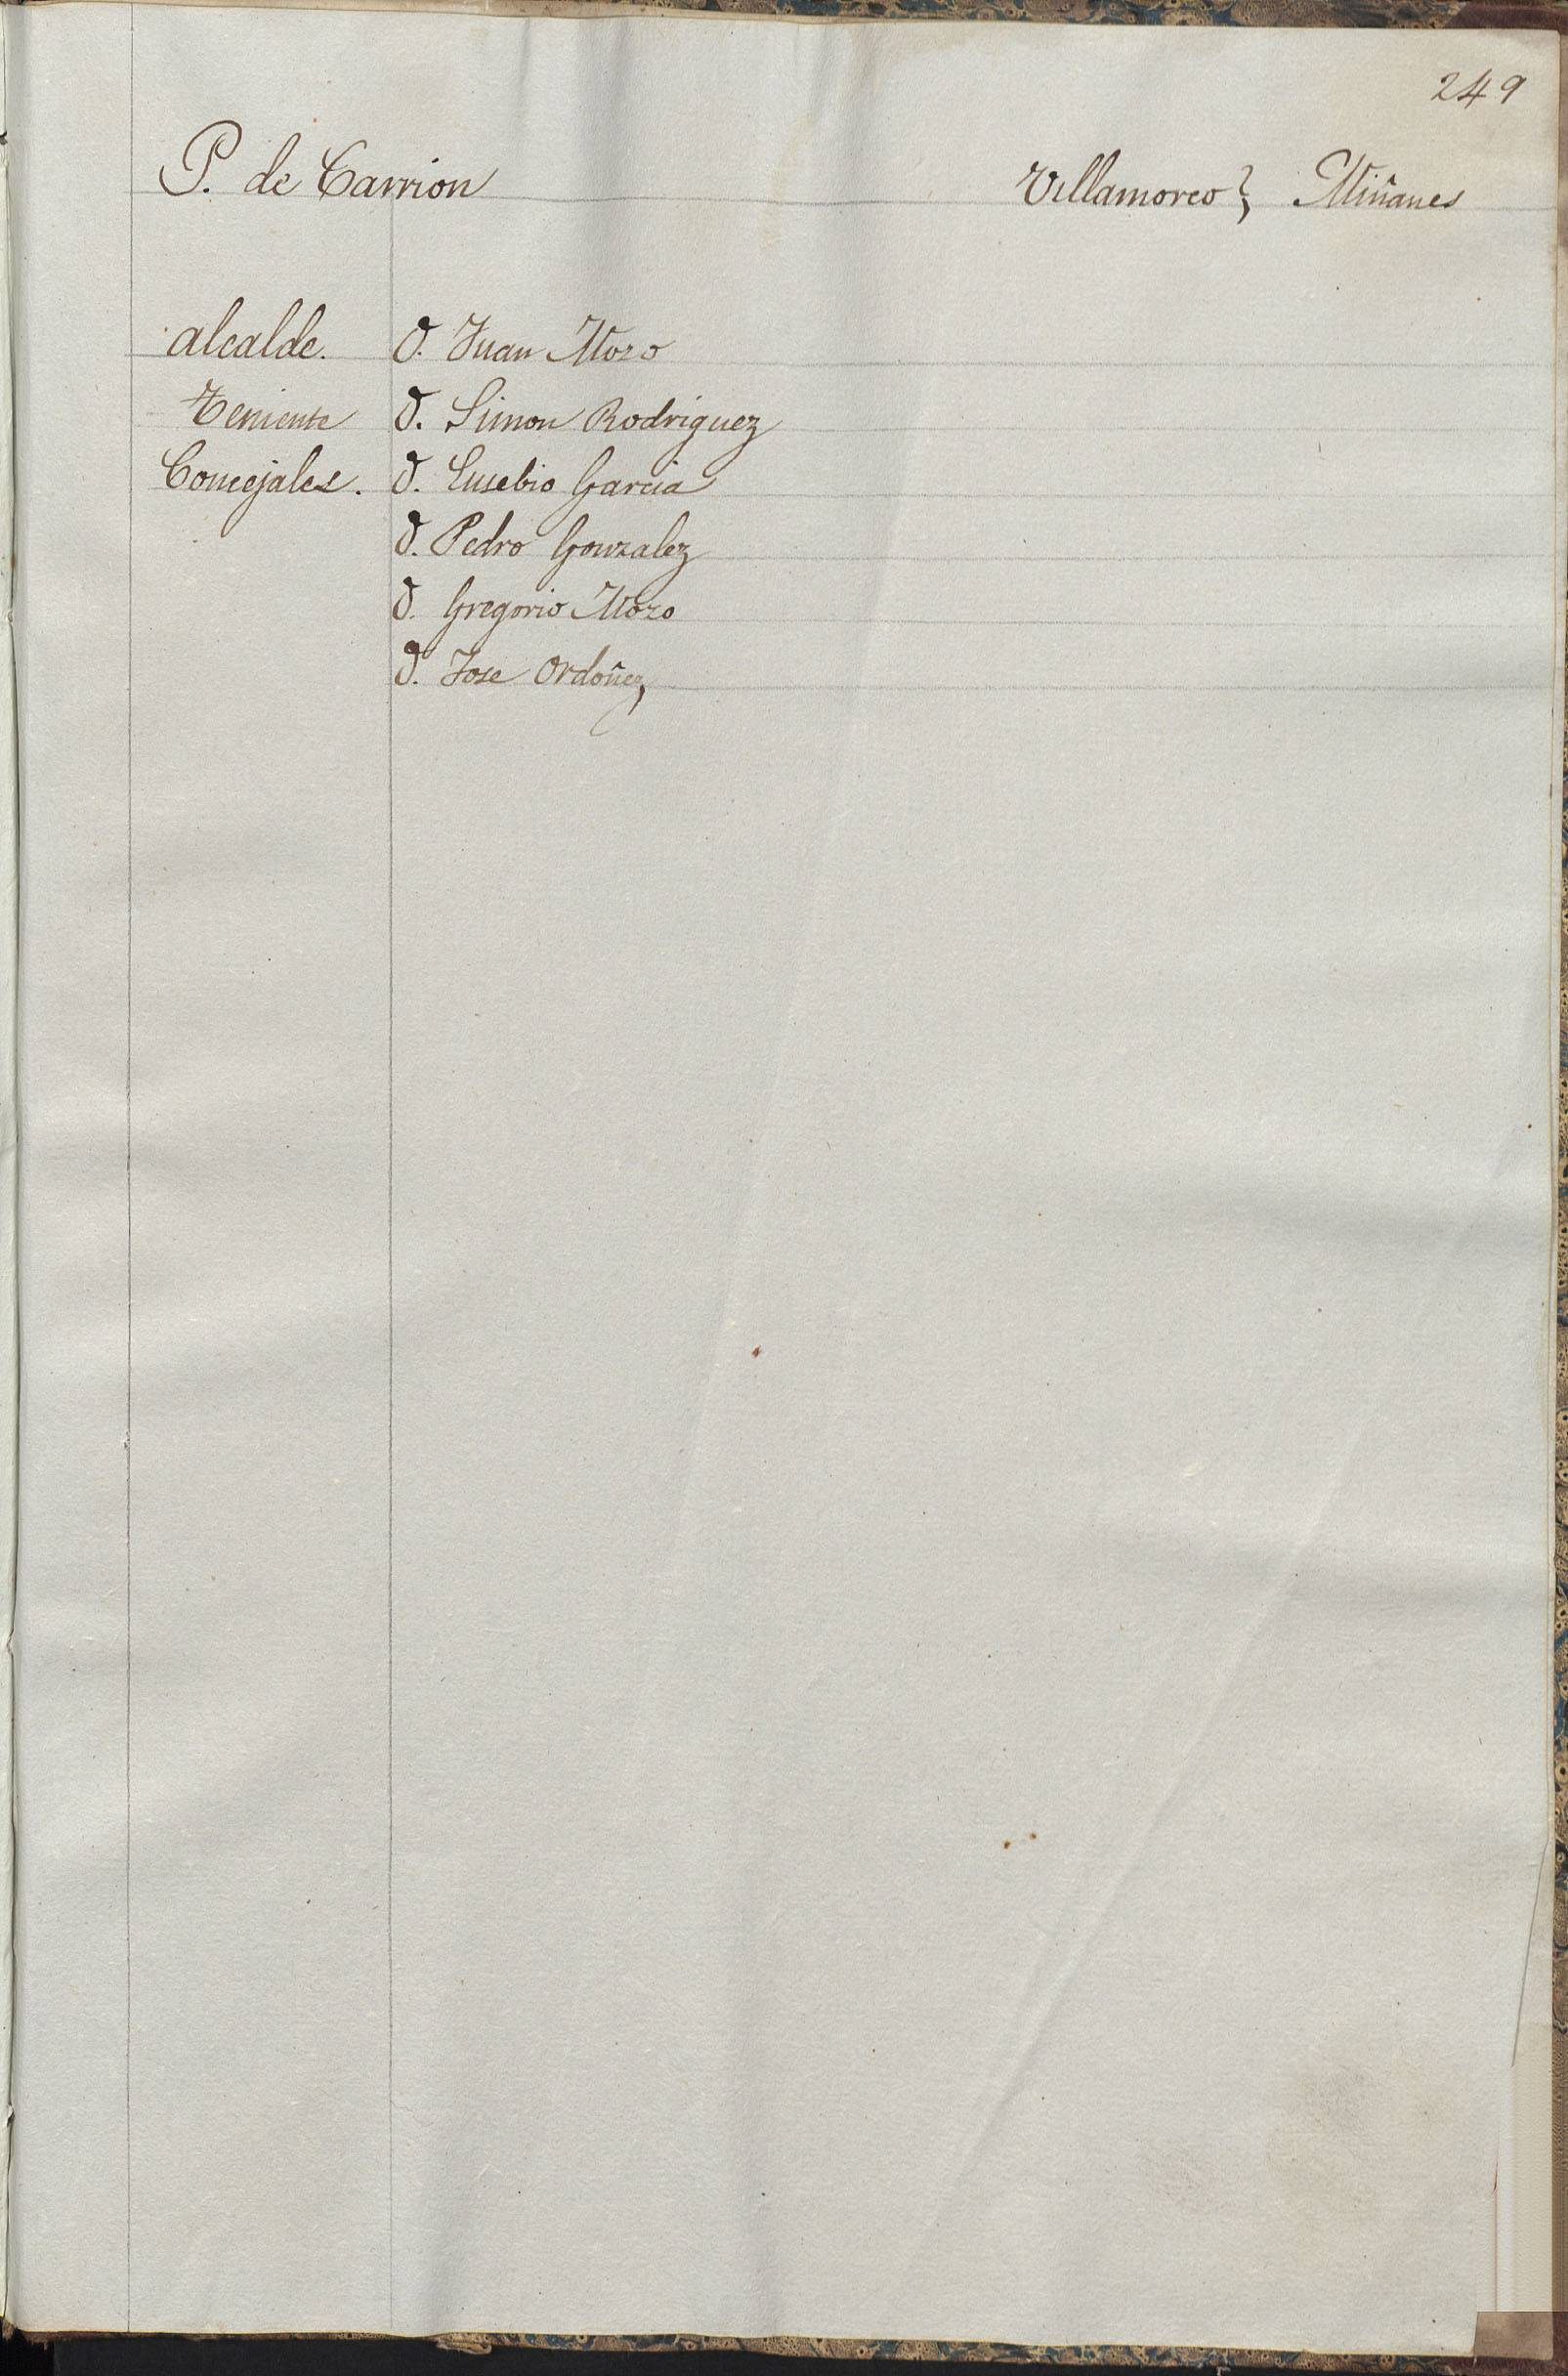 249
P. de Carrion Villamorco } Miñanes
Alcalde. D. Juan Mozo
Teniente D. Simon Rodriguez
Concejales. D. Eusebio Garcia
D. Pedro Gonzalez
D. Gregorio Mozo
D. Jose Ordoñez